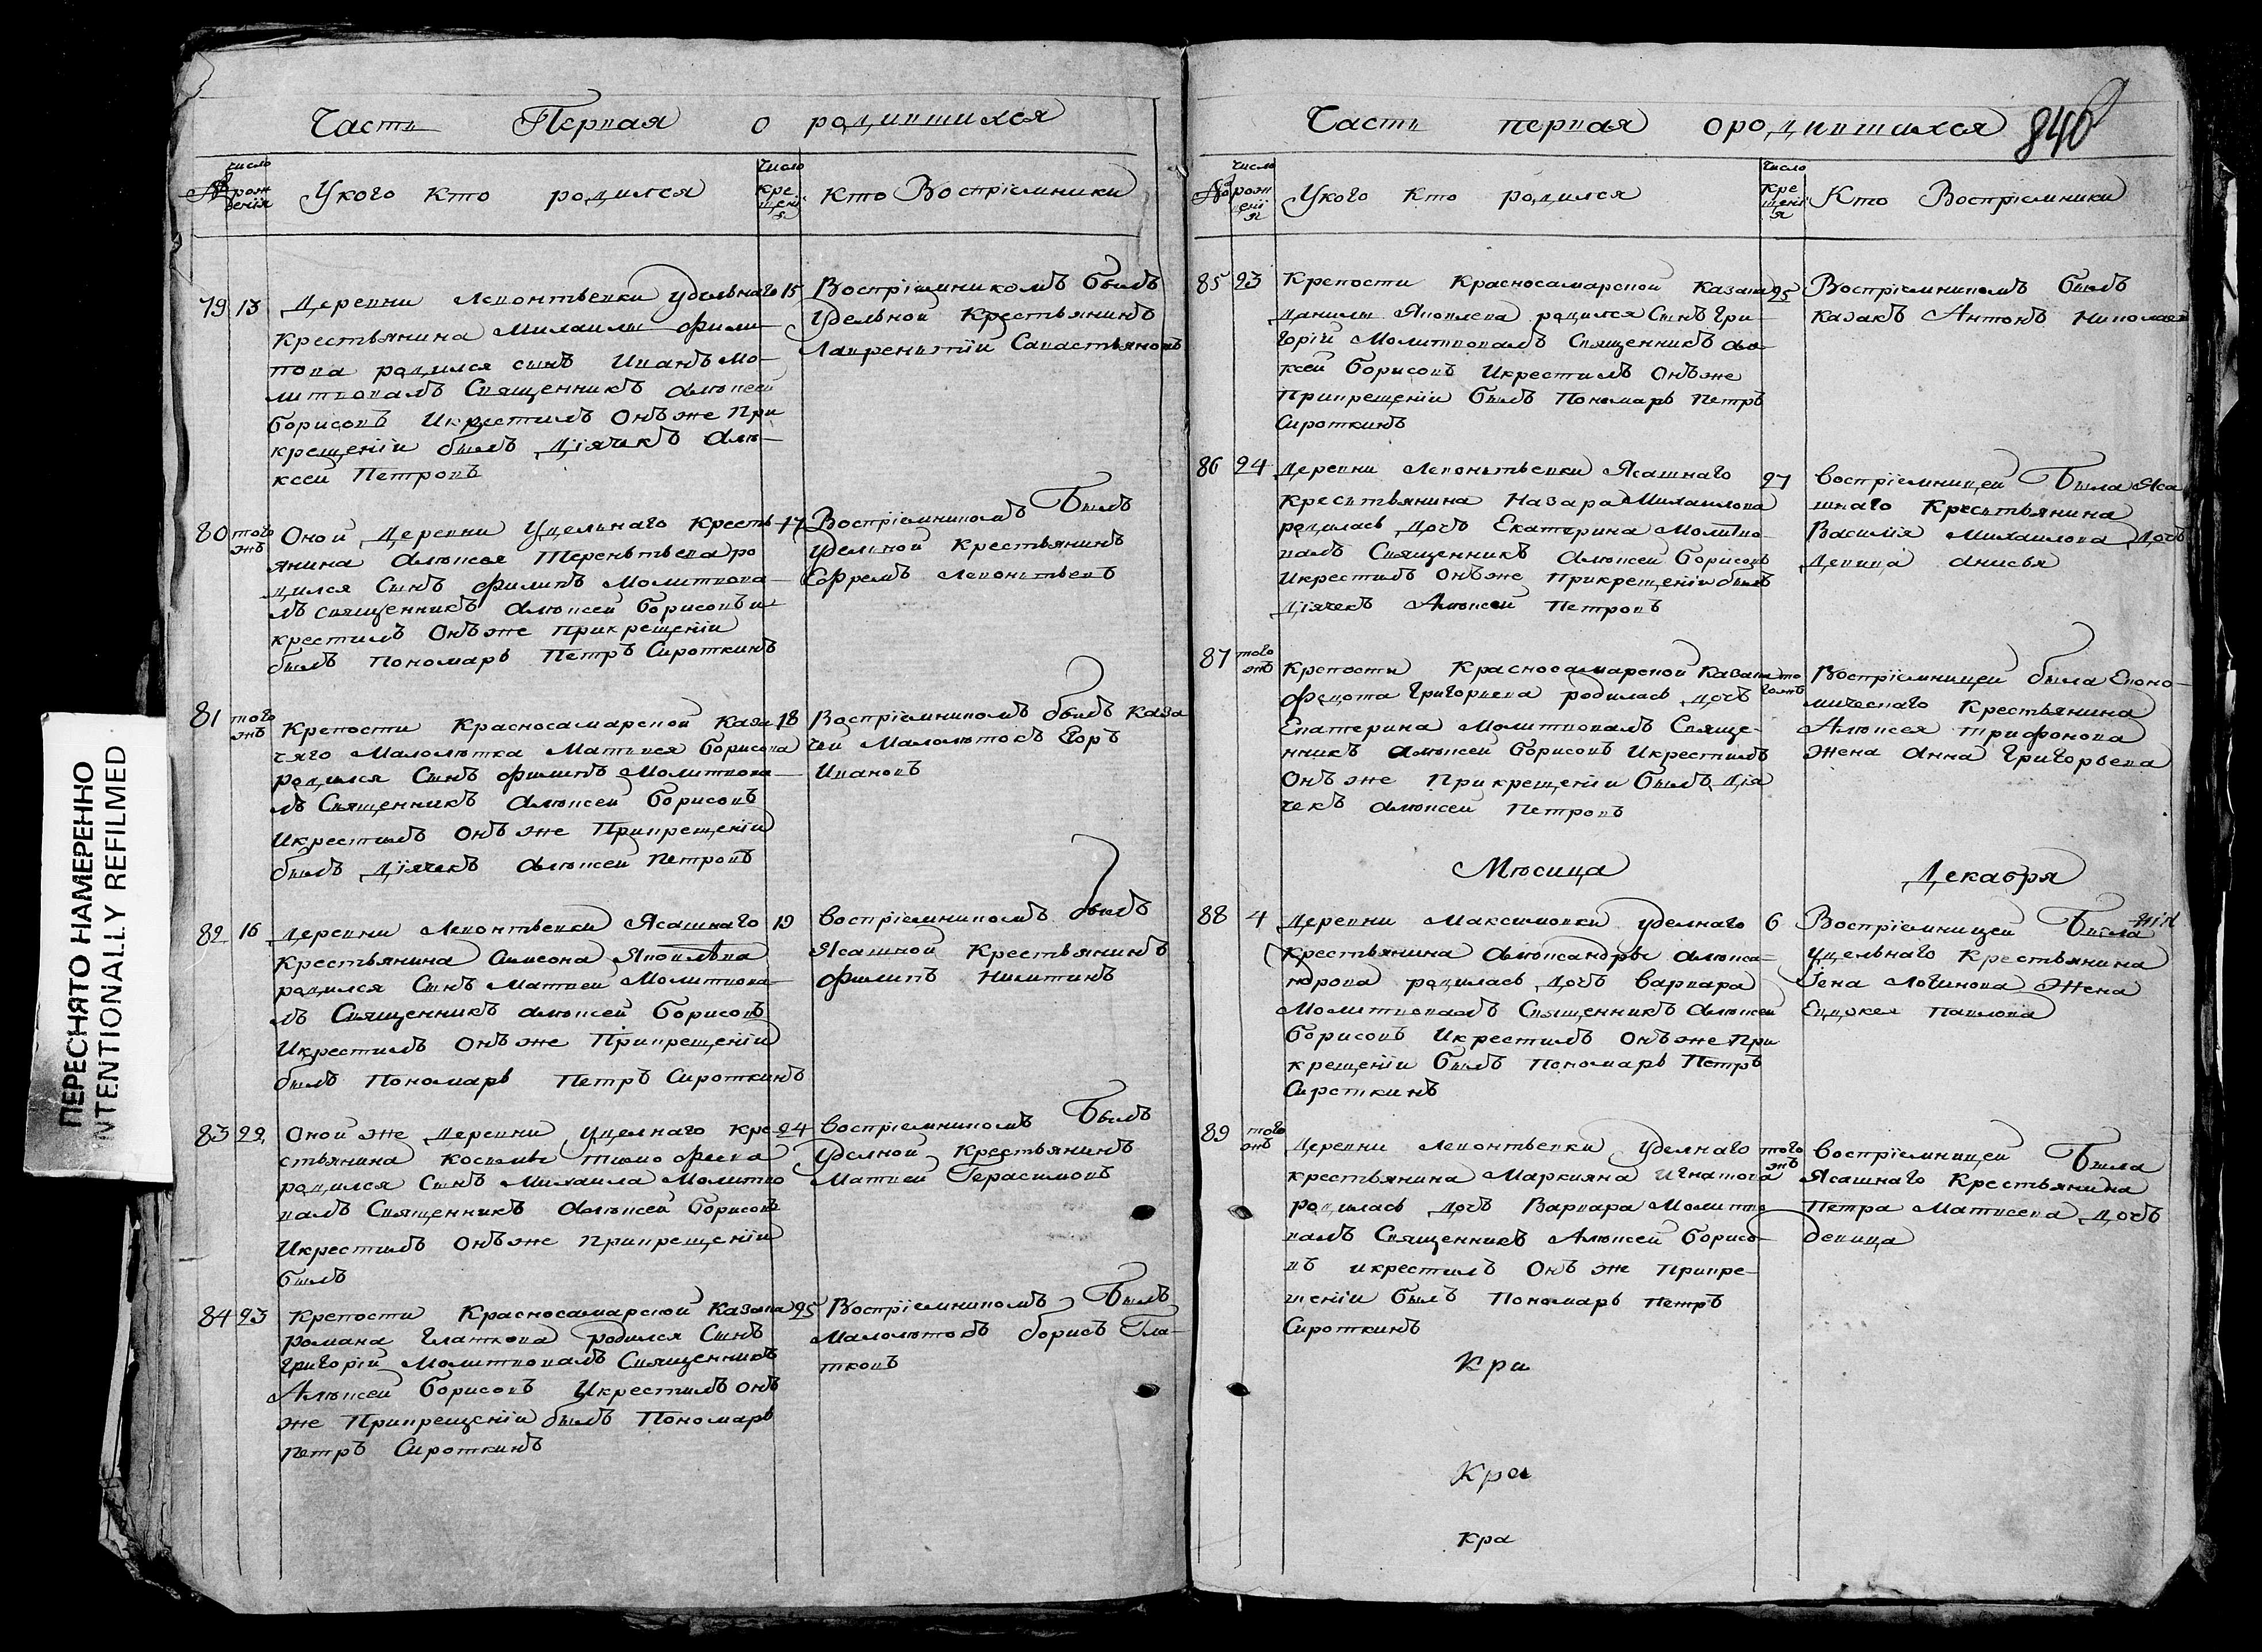 ПЕРЕСНЯТО НАМЕРЕННО
INTENTIONALLY REFILMED
Часть Первая о родившихся
№ число рождения
Укого кто родился
Число крещенїя
кто Воспрїемники
79 13 Деревни Леонтьевки удельнаго 15
Крестьянина Михаилы Фили-
пова родился сынъ Иванъ Мо-
литвовалъ Священникъ Алѣксей
Борисовъ Икрестилъ Онъже При
крещенїи былъ Дїячекъ Алѣ-
ксей Петровъ
Воспрїемникомъ былъ
Удельной Крестьянинъ
Лаврентїй Савастьяновъ
80 того жъ Оной Деревни Удельнаго Кресть- 17
янина Алѣксея Терентьева ро
дился Сынъ Филипъ Молитвова-
лъ священникъ Алѣксей Борисовъ и
крестилъ Онъже прикрещенїи
былъ Пономарь Петръ Сироткинъ
Воспрїемникомъ Былъ
Удельной Крестьянинъ
Ефремъ Леонтьевъ
81 того жъ Крепости Красносамарской Каза- 18
чяго Малолѣтка Матвея Борисова
родился Сынъ Филипъ Молитвова-
лъ Священникъ Алѣксей Борисовъ
Икрестилъ Онъже Прикрещенїи
былъ Дїячекъ Алѣксей Петровъ
Воспрїемникомъ былъ Каза
чей Малолѣтокъ Егоръ
Ивановъ
82 16 Деревни Леонтьевки Ясашнаго 19
крестьянина Симеона Яковлева
родился Сынъ Матвей Молитвова-
лъ Священникъ Алѣксей Борисовъ
Икрестилъ Онъже Прикрещенїи
былъ Пономарь Петръ Сироткинъ
воспрїемникомъ былъ
Ясашной Крестьянинъ
Филипъ Никитинъ
83 22 Оной же Деревни Уделнаго Кре- 24
стьянина Косьмы Тимофеева
родился Сынъ Михаила Молитво
валъ Священникъ Алѣксей Борисовъ
Икрестилъ Онъже Прикрещенїи
былъ
воспрїемникомъ Былъ
Уделной Крестьянинъ
Матвей Герасимовъ
84 23 Крепости Красносамарской Казака 25
Романа Глаткова родился Сынъ
Григорїй Молитвовалъ Священникъ
Алѣксей Борисовъ Икрестилъ онъ
же Прикрещенїи былъ Пономарь
Петръ Сироткинъ
Воспрїемникомъ Былъ
Малолѣтокъ Борисъ Гла-
тковъ
Часть первая ородившихся 846
№ число рожденїя
Укого Кто родился
число Крещенїя
Кто Воспрїемники
85 23 Крепости Красносамарской Казака 25
Данилы Яковлева родился Сынъ Гри-
горїй Молитвовалъ Священникъ Алѣ-
ксей Борисовъ Икрестилъ Онъже
Прикрещенїи былъ Пономарь Петръ
Сироткинъ
Воспрїемникомъ былъ
Казакъ Антонъ Николаев
86 24 Деревни Леонтьевки Ясашнаго 27
Крестьянина Назара Михаилова
родилась Дочь Екатерина Молитво-
валъ Священникъ Алѣксей Борисовъ
Икрестилъ Онъже Прикрещенїи былъ
Дїячекъ Алѣксей Петровъ
воспрїемницей Была Яса
шнаго Крестьянина
Василїя Михаилова Дочь
Девица Анисья
87 того жъ Крепости Красносамарской Казака того жъ
Федота Григорьева родилась Дочь
Екатерина Молитвовалъ Свяще-
нникъ Алѣксей Борисовъ Икрестилъ
Онъже Прикрещенїи былъ Дїя
чекъ Алѣксей Петровъ
Воспрїемницей была Еконо-
мическаго Крестьянина
Алѣксея Трифонова
Жена Анна Григорьева
Мѣсица Декабря
88 4 Деревни Максимовки уделнаго 6
крестьянина Алѣксандры Алѣкса-
ндрова родилась Дочь Варвара
Молитвовалъ Священникъ Алѣксей
Борисовъ Икрестилъ Онъже При
крещенїи былъ Пономарь Петръ
Сироткинъ
Воспрїемницей Была
Удельнаго Крестьянина
Гена Логинова Жена
Евдокея Павлова
89 того жъ Деревни Леонтьевки Уделнаго того жъ
крестьянина Маркияна Игнатова
родилась Дочь Варвара Молитво
валъ Священникъ Алѣксей Борисо-
въ икрестилъ Онъ же Прикре-
щенїи былъ Пономарь Петръ
Сироткинъ
воспрїемницей Была
Ясашнаго Крестьянина
Петра Матвеева Дочь
девица
Кри
Кра
Кра